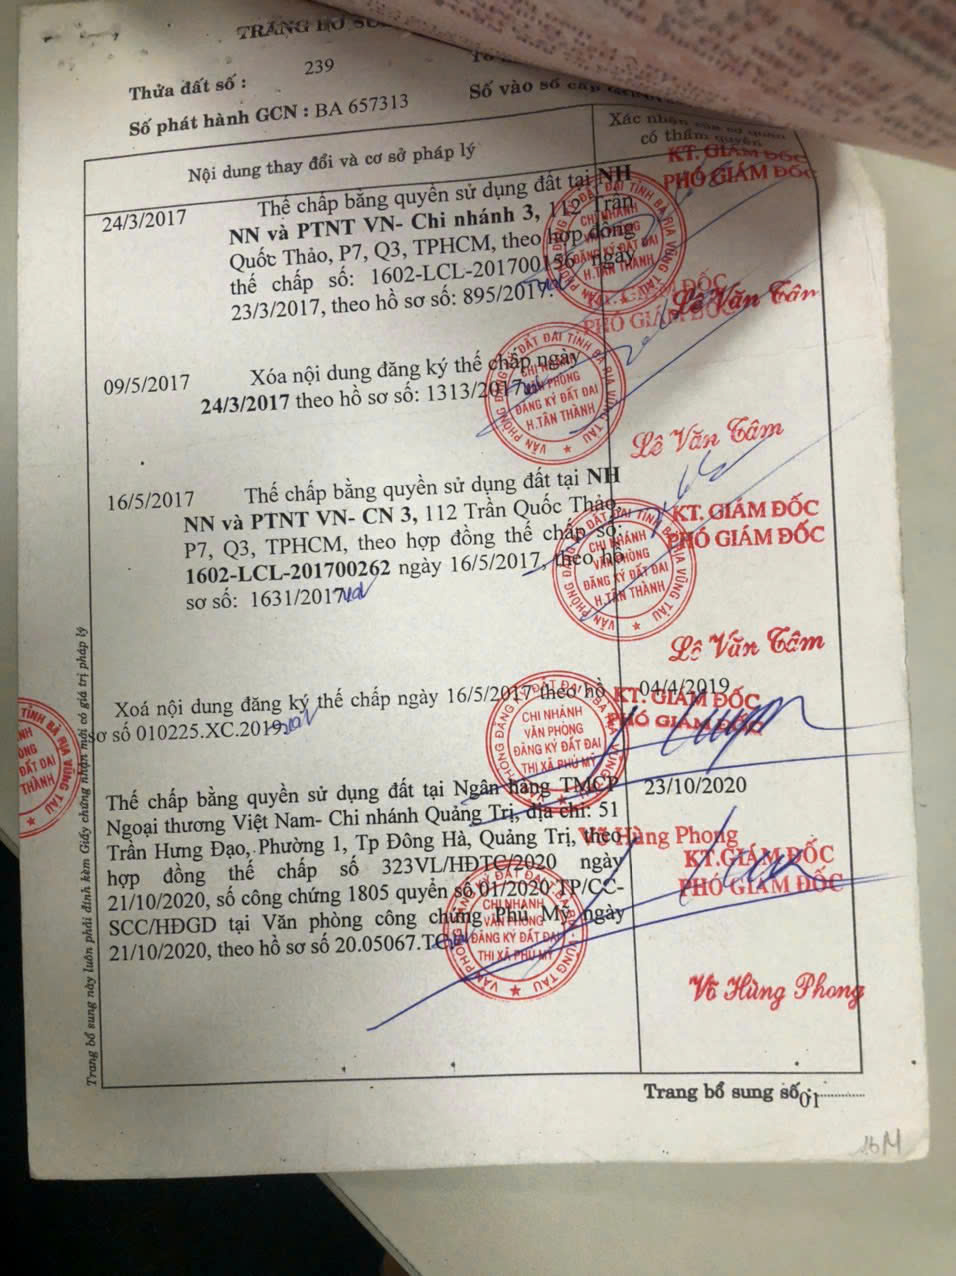 TRANG BỔ
Thửa đất số : 239
Số phát hành GCN : BA 657313
Số vào sổ cấp
Nội dung thay đổi và cơ sở pháp lý
Xác nhận của cơ quan
có thẩm quyền
24/3/2017 Thế chấp bằng quyền sử dụng đất tại NH
NN và PTNT VN- Chi nhánh 3, 112 Trần
Quốc Thảo, P7, Q3, TPHCM, theo hợp đồng
thế chấp số: 1602-LCL-201700156 ngày
23/3/2017, theo hồ sơ số: 895/2017.
KT. GIÁM ĐỐC
PHÓ GIÁM ĐỐC
Lê Văn Tâm
VĂN PHÒNG ĐĂNG KÝ ĐẤT ĐAI TỈNH BÀ RỊA VŨNG TÀU
CHI NHÁNH
VĂN PHÒNG
ĐĂNG KÝ ĐẤT ĐAI
H.TÂN THÀNH
09/5/2017 Xóa nội dung đăng ký thế chấp ngày
24/3/2017 theo hồ sơ số: 1313/2017
KT. GIÁM ĐỐC
PHÓ GIÁM ĐỐC
Lê Văn Tâm
VĂN PHÒNG ĐĂNG KÝ ĐẤT ĐAI TỈNH BÀ RỊA VŨNG TÀU
CHI NHÁNH
VĂN PHÒNG
ĐĂNG KÝ ĐẤT ĐAI
H.TÂN THÀNH
16/5/2017 Thế chấp bằng quyền sử dụng đất tại NH
NN và PTNT VN- CN 3, 112 Trần Quốc Thảo,
P7, Q3, TPHCM, theo hợp đồng thế chấp số:
1602-LCL-201700262 ngày 16/5/2017, theo hồ
sơ số: 1631/2017
KT. GIÁM ĐỐC
PHÓ GIÁM ĐỐC
Lê Văn Tâm
VĂN PHÒNG ĐĂNG KÝ ĐẤT ĐAI TỈNH BÀ RỊA VŨNG TÀU
CHI NHÁNH
VĂN PHÒNG
ĐĂNG KÝ ĐẤT ĐAI
H.TÂN THÀNH
Xoá nội dung đăng ký thế chấp ngày 16/5/2017 theo hồ
sơ số 010225.XC.2019
04/4/2019
KT. GIÁM ĐỐC
PHÓ GIÁM ĐỐC
Võ Hùng Phong
CHI NHÁNH
VĂN PHÒNG
ĐĂNG KÝ ĐẤT ĐAI
THỊ XÃ PHÚ MỸ
Thế chấp bằng quyền sử dụng đất tại Ngân hàng TMCP
Ngoại thương Việt Nam- Chi nhánh Quảng Trị, địa chỉ: 51
Trần Hưng Đạo, Phường 1, Tp Đông Hà, Quảng Trị, theo
hợp đồng thế chấp số 323VL/HĐTC/2020 ngày
21/10/2020, số công chứng 1805 quyển số 01/2020 TP/CC-
SCC/HĐGD tại Văn phòng công chứng Phú Mỹ ngày
21/10/2020, theo hồ sơ số 20.05067.TC
23/10/2020
KT.GIÁM ĐỐC
PHÓ GIÁM ĐỐC
Võ Hùng Phong
CHI NHÁNH
VĂN PHÒNG
ĐĂNG KÝ ĐẤT ĐAI
THỊ XÃ PHÚ MỸ
Trang bổ sung này luôn phải đính kèm Giấy chứng nhận mới có giá trị pháp lý
TỈNH BÀ RỊA VŨNG TÀU
ĐẤT ĐAI
THÀNH
Trang bổ sung số 01